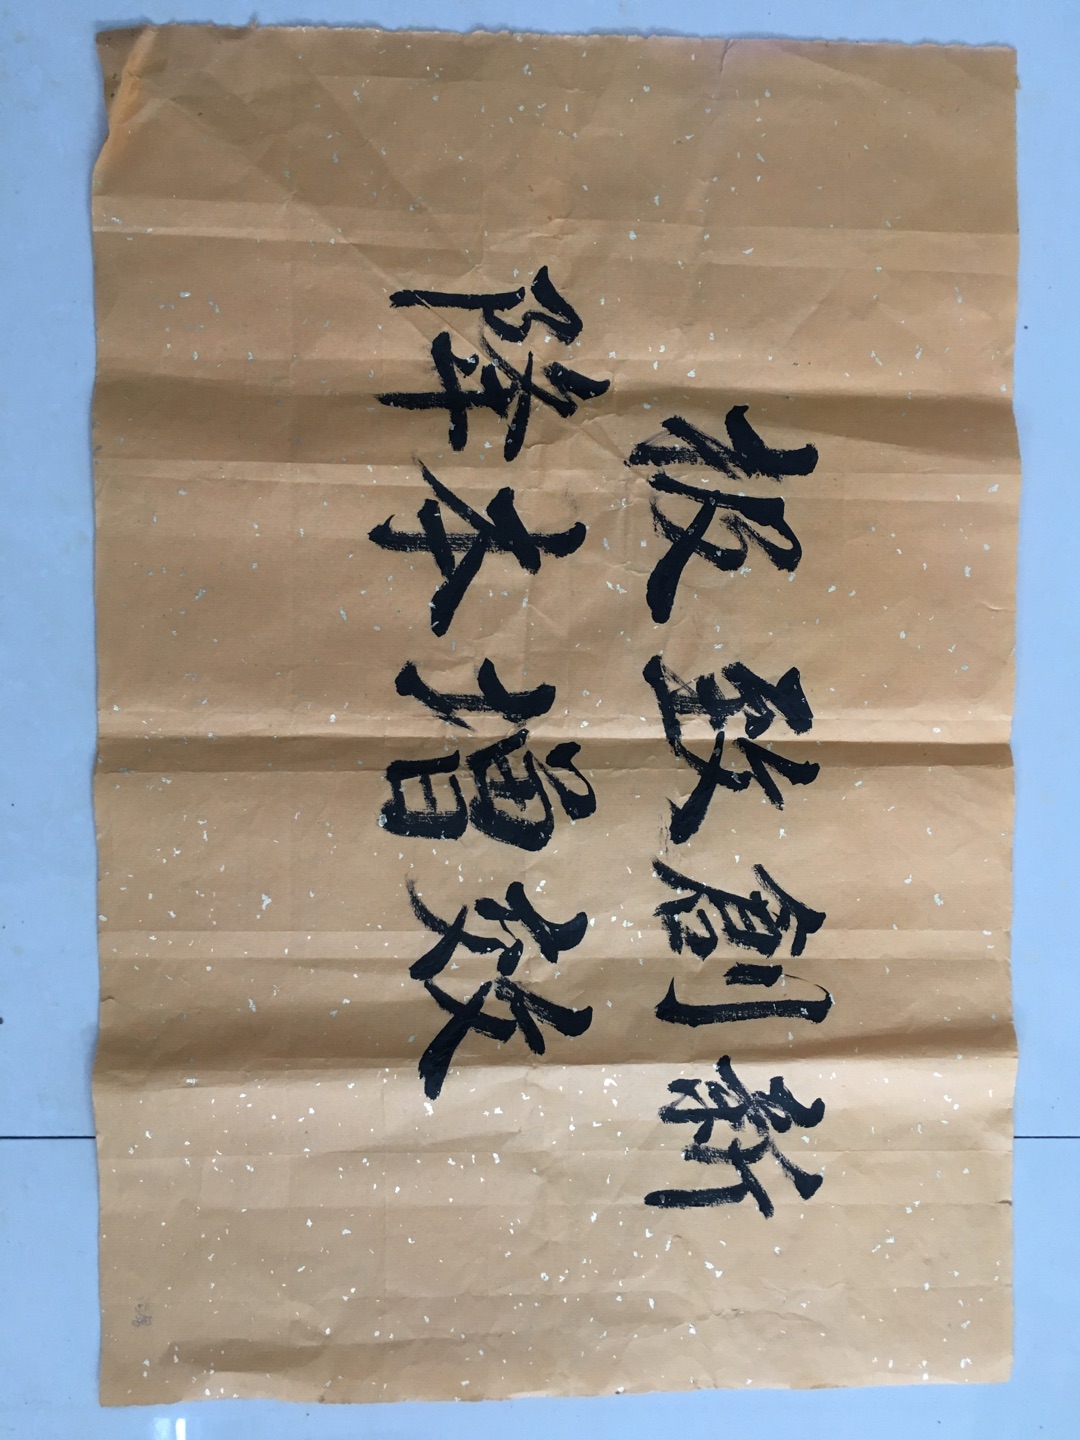 极致創新
降本增效